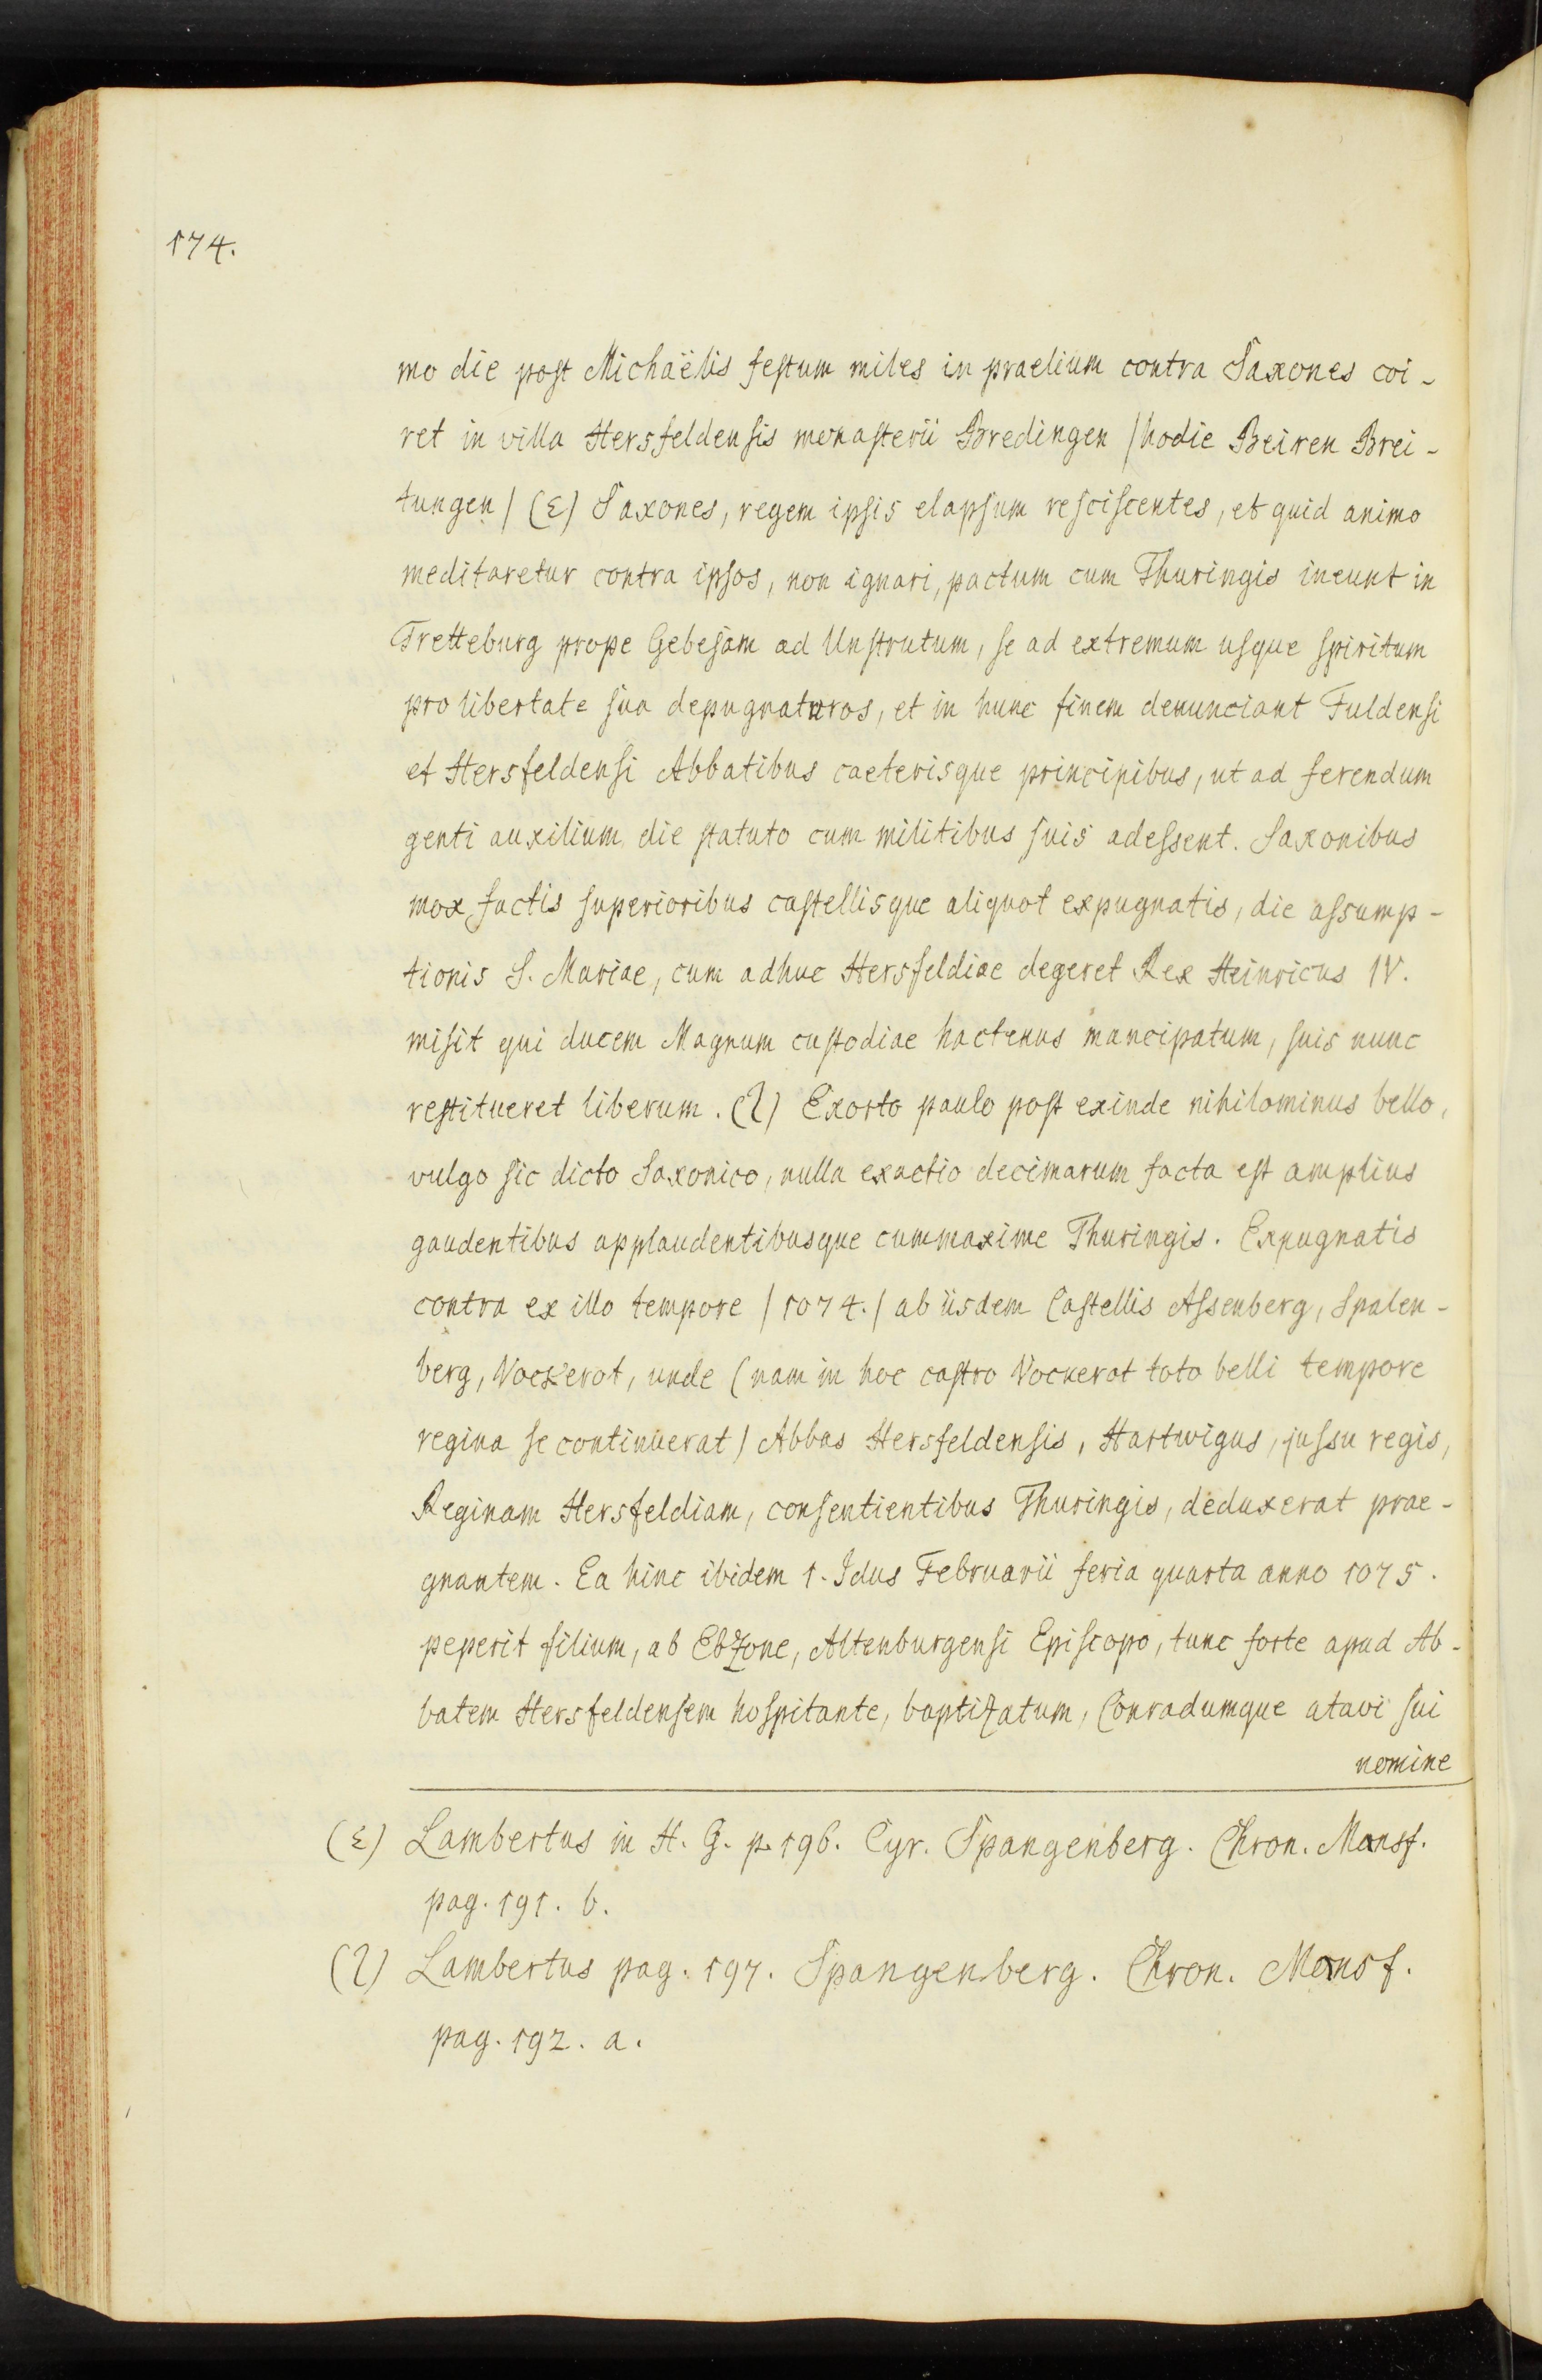 174.
mo die post Michaëlis festum miles in praelium contra Saxones coi-
ret in villa Hersfeldensis monasterii Bredingen /hodie Beiren Brei-
tungen/ (ε) Saxones, regem ipsis elapsum resciscentes, et quid animo
meditaretur contra ipsos, non ignari, pactum cum Thuringis ineunt in
Tretteburg prope Gebesam ad Unstrutum, se ad extremum usque spiritum
pro libertate sua depugnaturos, et in hunc finem denunciant Fuldensi
et Hersfeldensi Abbatibus caeterisque principibus, ut ad ferendum
genti auxilium die statuto cum militibus suis adessent. Saxonibus
mox factis superioribus castellisque aliquot expugnatis, die assump-
tionis S. Mariae, cum adhuc Hersfeldiae degeret Rex Heinricus IV.
misit qui ducem Magnum custodiae hactenus mancipatum, suis nunc
restitueret liberum. (ζ) Exorto paulo post exinde nihilominus bello,
vulgo sic dicto Saxonico, nulla exactio decimarum facta est amplius
gaudentibus applaudentibusque cummaxime Thuringis. Expugnatis
contra ex illo tempore /1074./ ab iisdem Castellis Assenberg, Spalen-
berg, Vockerot, unde (nam in hoc castro Vockerot toto belli tempore
regina se continuerat) Abbas Hersfeldensis, Hartwigus, jussu regis,
Reginam Hersfeldiam, consentientibus Thuringis, deduxerat prae-
gnantem. Ea hinc ibidem 1. Idus Februarii feria quarta anno 1075.
peperit filium, ab Ebzone, Altenburgensi Episcopo, tunc forte apud Ab-
batem Hersfeldensem hospitante, baptizatum, Conradumque atavi sui
nomine
(ε) Lambertus in H. G. p. 196. Cyr. Spangenberg. Chron. Mansf.
pag. 191. b.
(ζ) Lambertus pag. 197. Spangenberg. Chron. Mansf.
pag. 192. a.